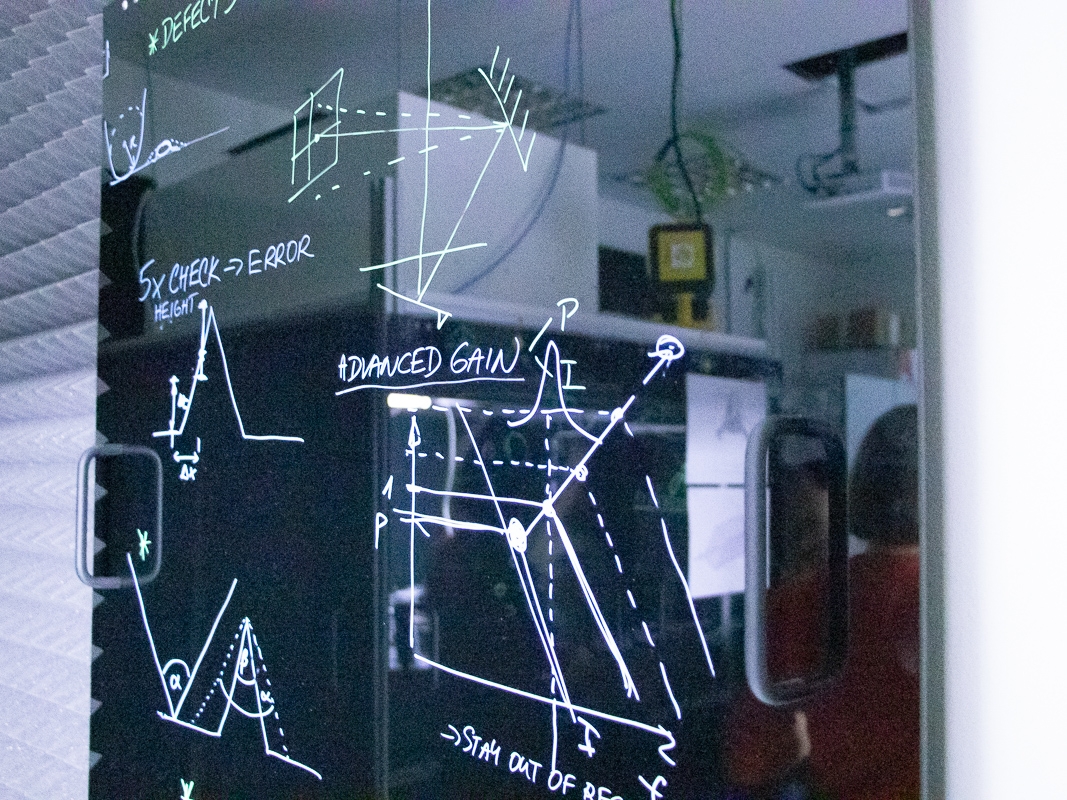 * DEFECTS
α
α
5X CHECK → ERROR
HEIGHT
Δx
ADVANCED GAIN
P
I
1
P
*
α
β
α
I
→ STAY OUT OF